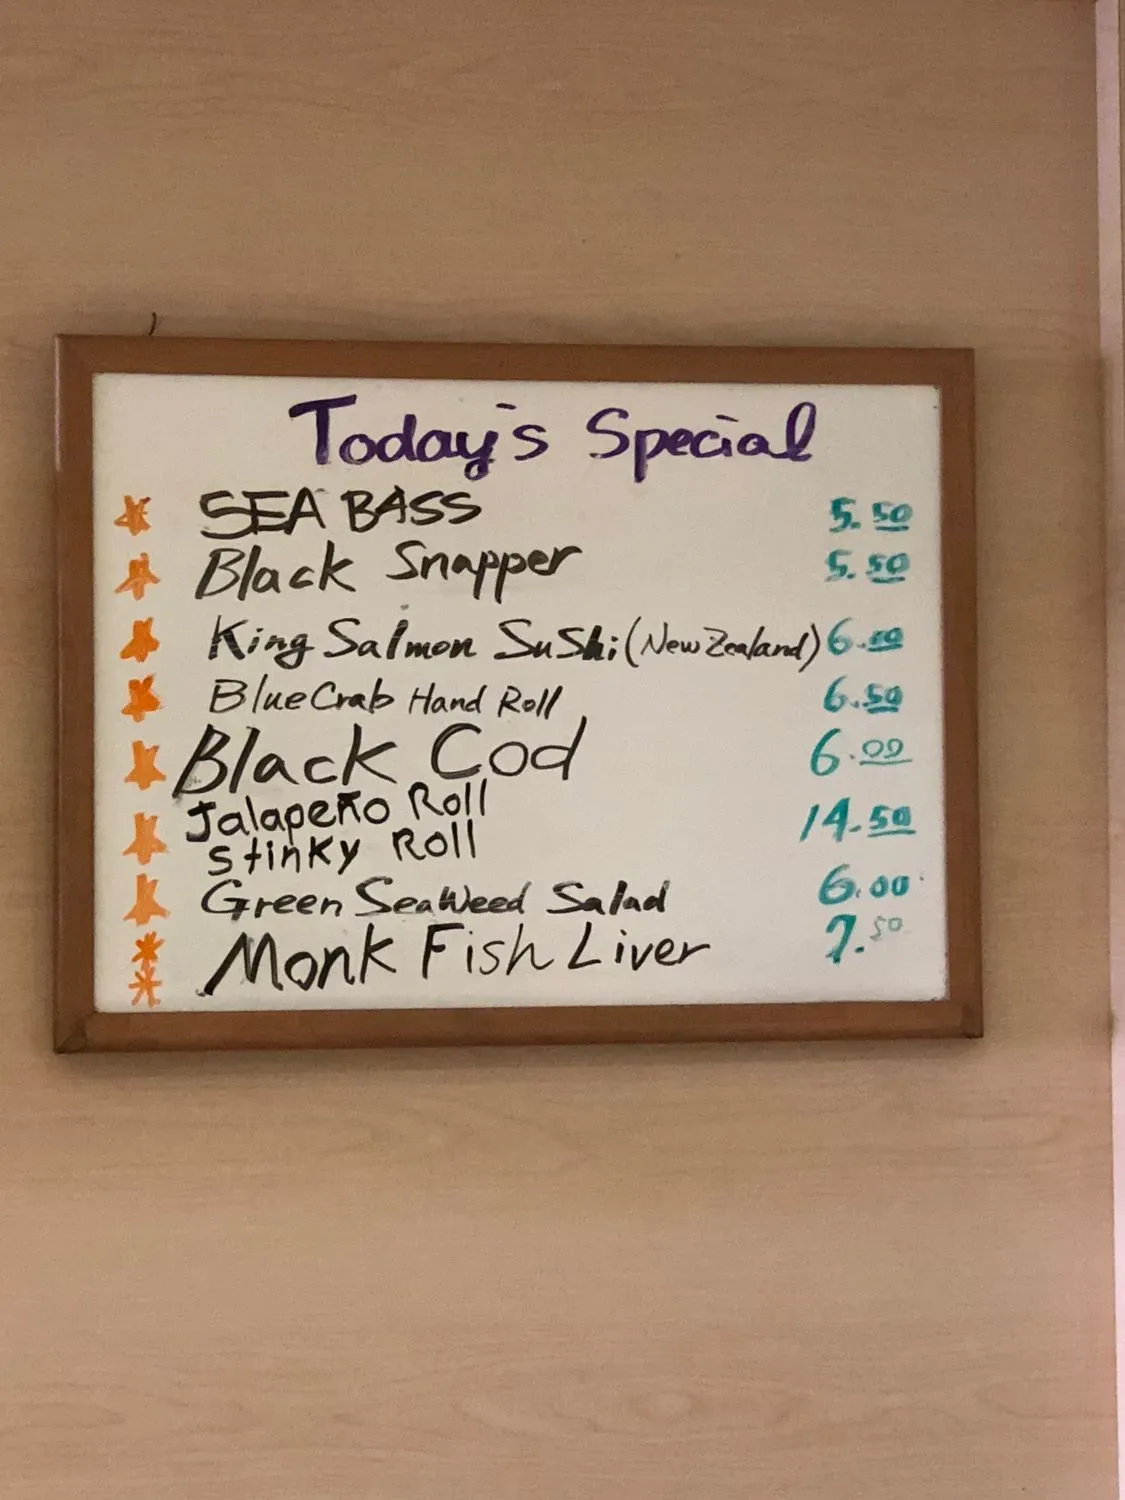 Today's Special
SEA BASS 5.50
Black Snapper 5.50
King Salmon SuShi (New Zealand) 6.50
Blue Crab Hand Roll 6.50
Black Cod 6.00
Jalapeño Roll 14.50
Stinky Roll
Green SeaWeed Salad 6.00
Monk Fish Liver 7.50